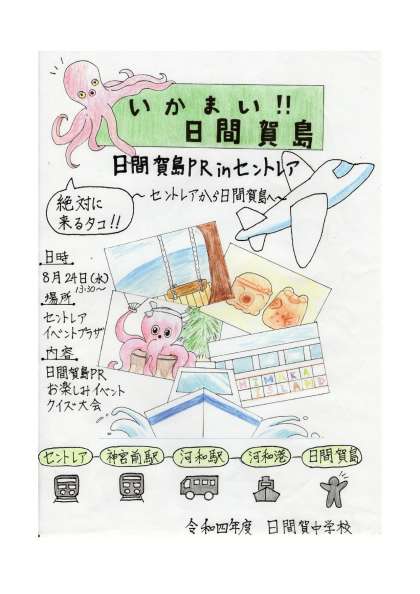 いかまい!!
日間賀島
日間賀島PRinセントレア
～セントレアから日間賀島へ～
絶対に
来るタコ!!
日時
8月24日(水)
13:30～
場所
セントレア
イベントプラザ
内容
日間賀島PR
お楽しみイベント
クイズ大会
HIMAKA
ISLAND
セントレア 神宮前駅 河和駅 河和港 日間賀島
令和四年度 日間賀中学校